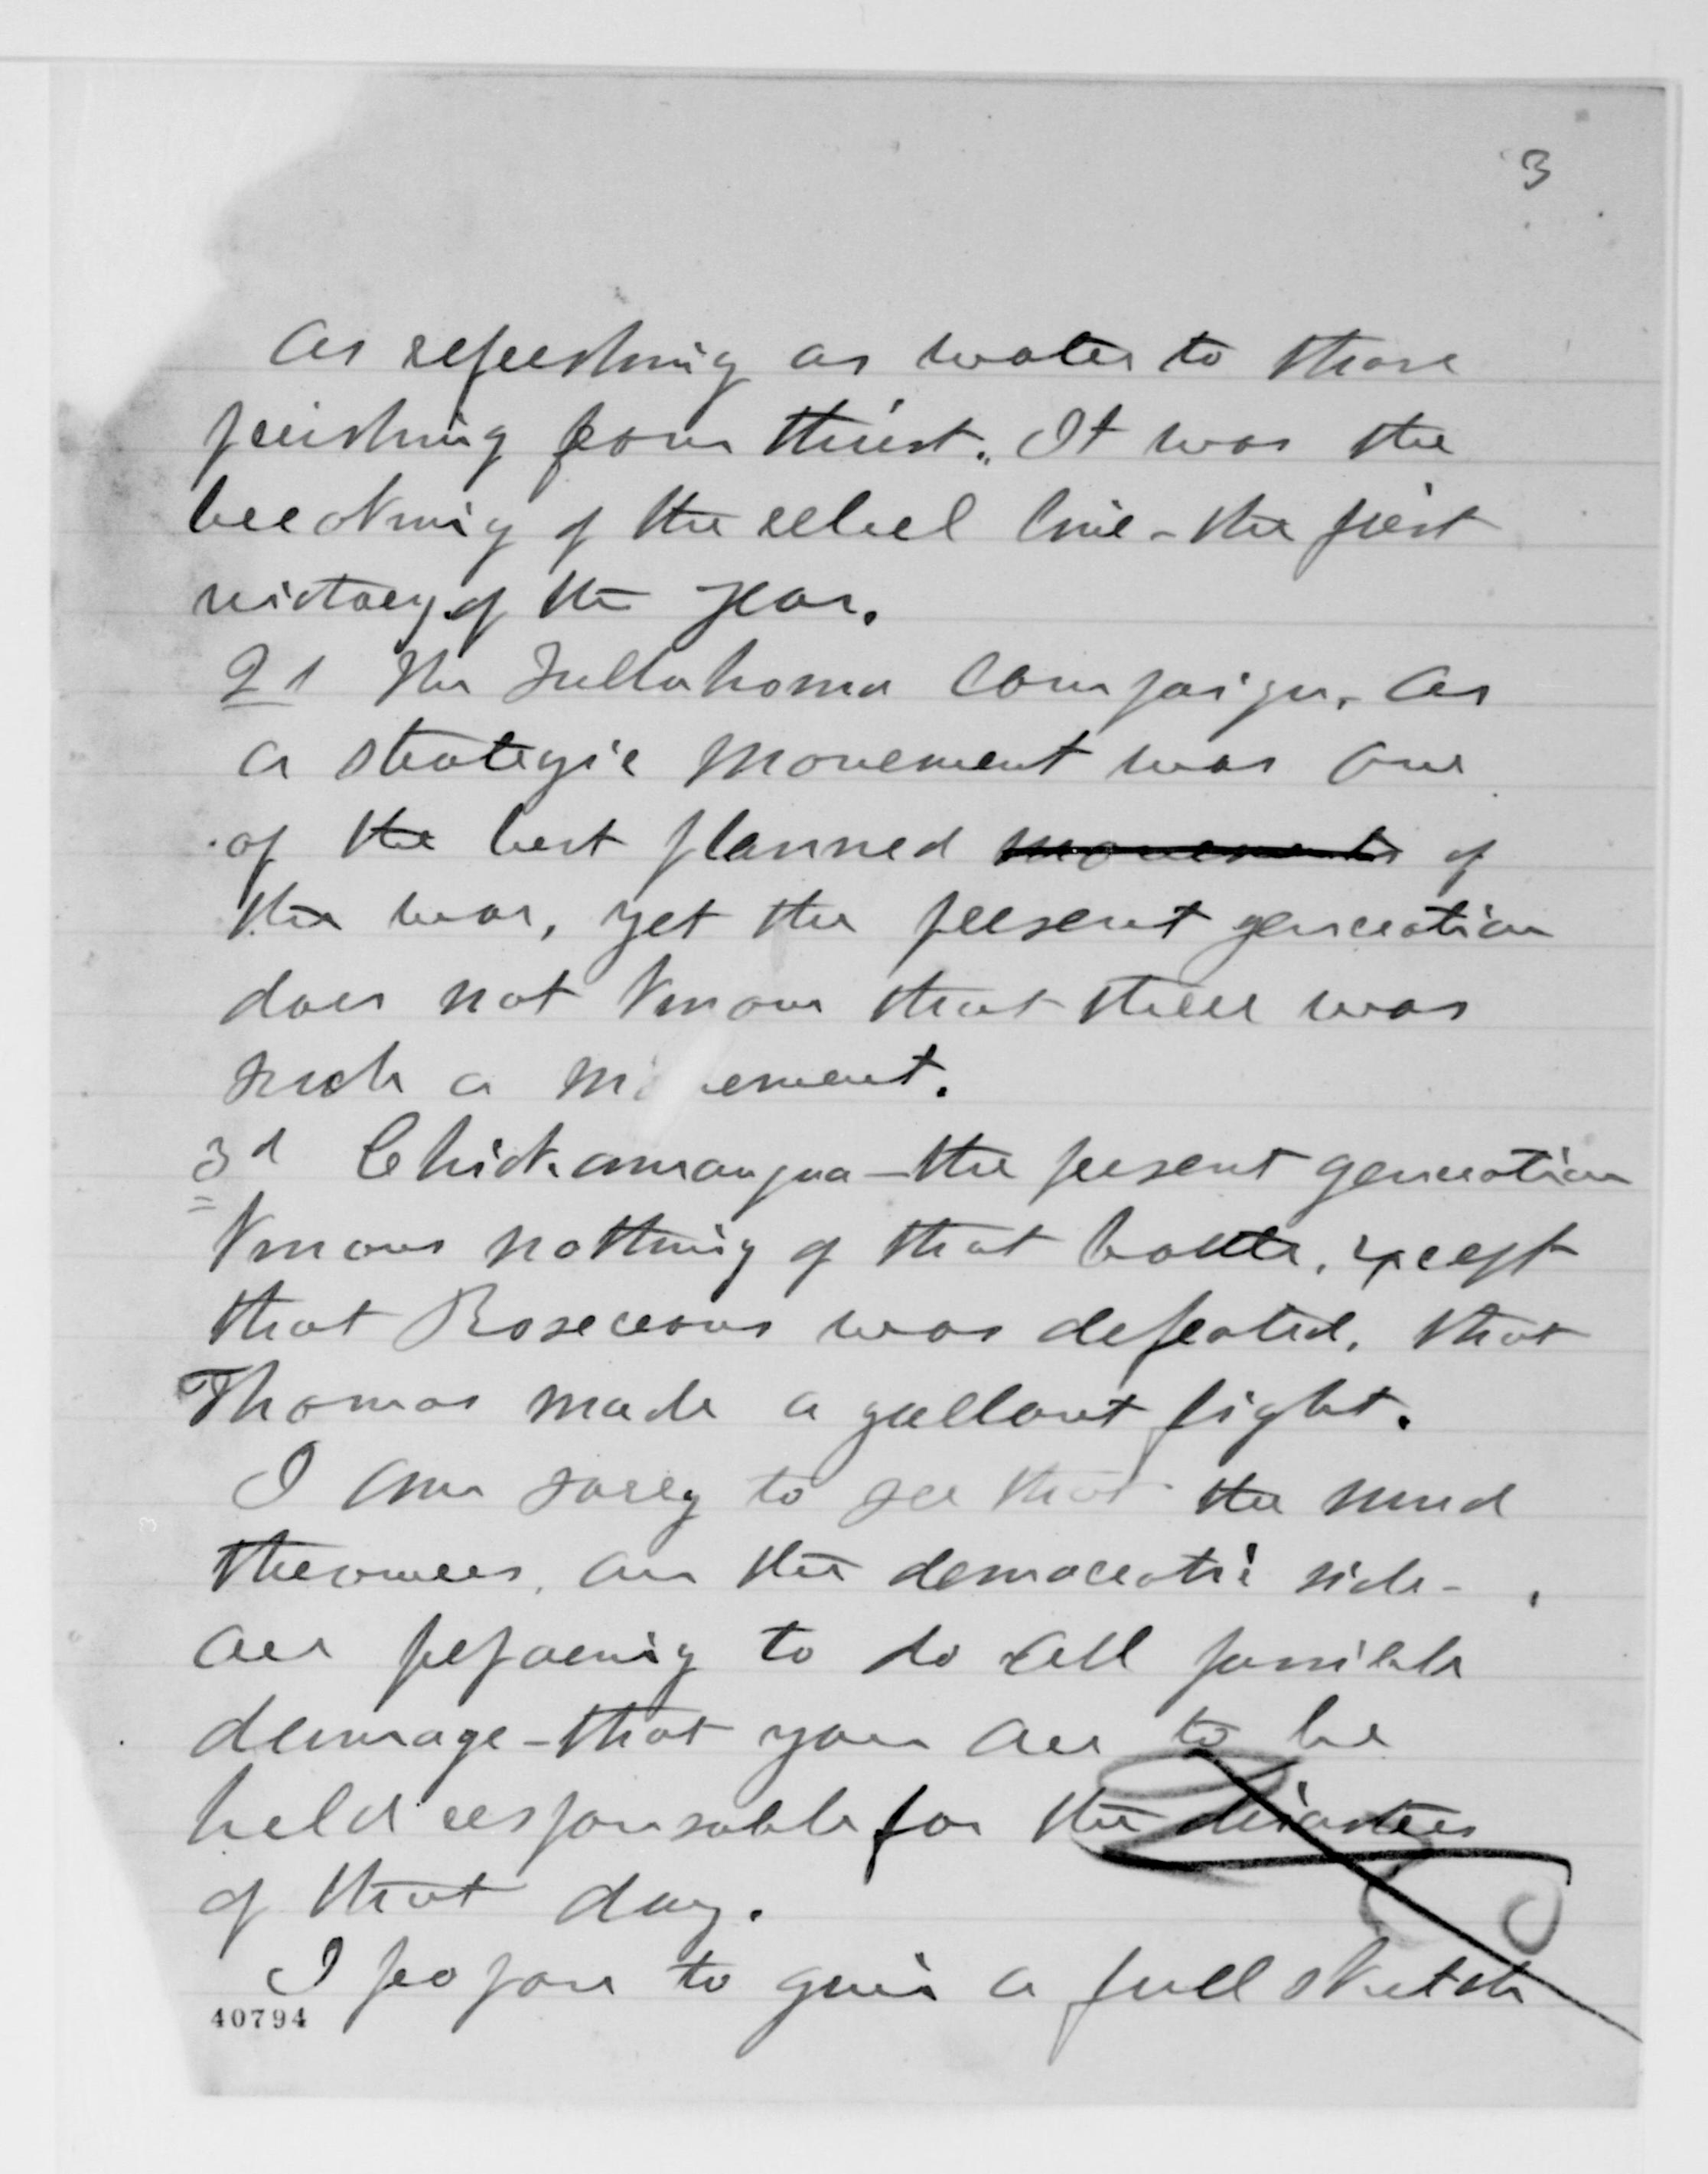 3
as refreshing as water to those
perishing from thirst. It was the
breaking of the rebel line - the first
victory of the year.
2d The Tullahoma Campaign, as
a strategic movement was one
of the best planned movements of
the war, yet the present generation
does not know that there was
such a movement.
3d Chickamaugua - the present generation
knows nothing of that battle, except
that Rosecrans was defeated, that
Thomas made a gallant fight.
I am sorry to see that the mud
throwers, on the democratic side -
are preparing to do all possible
damage - that you are to be
held responsable for the disasters
of that day.
I propose to give a full sketch
40794